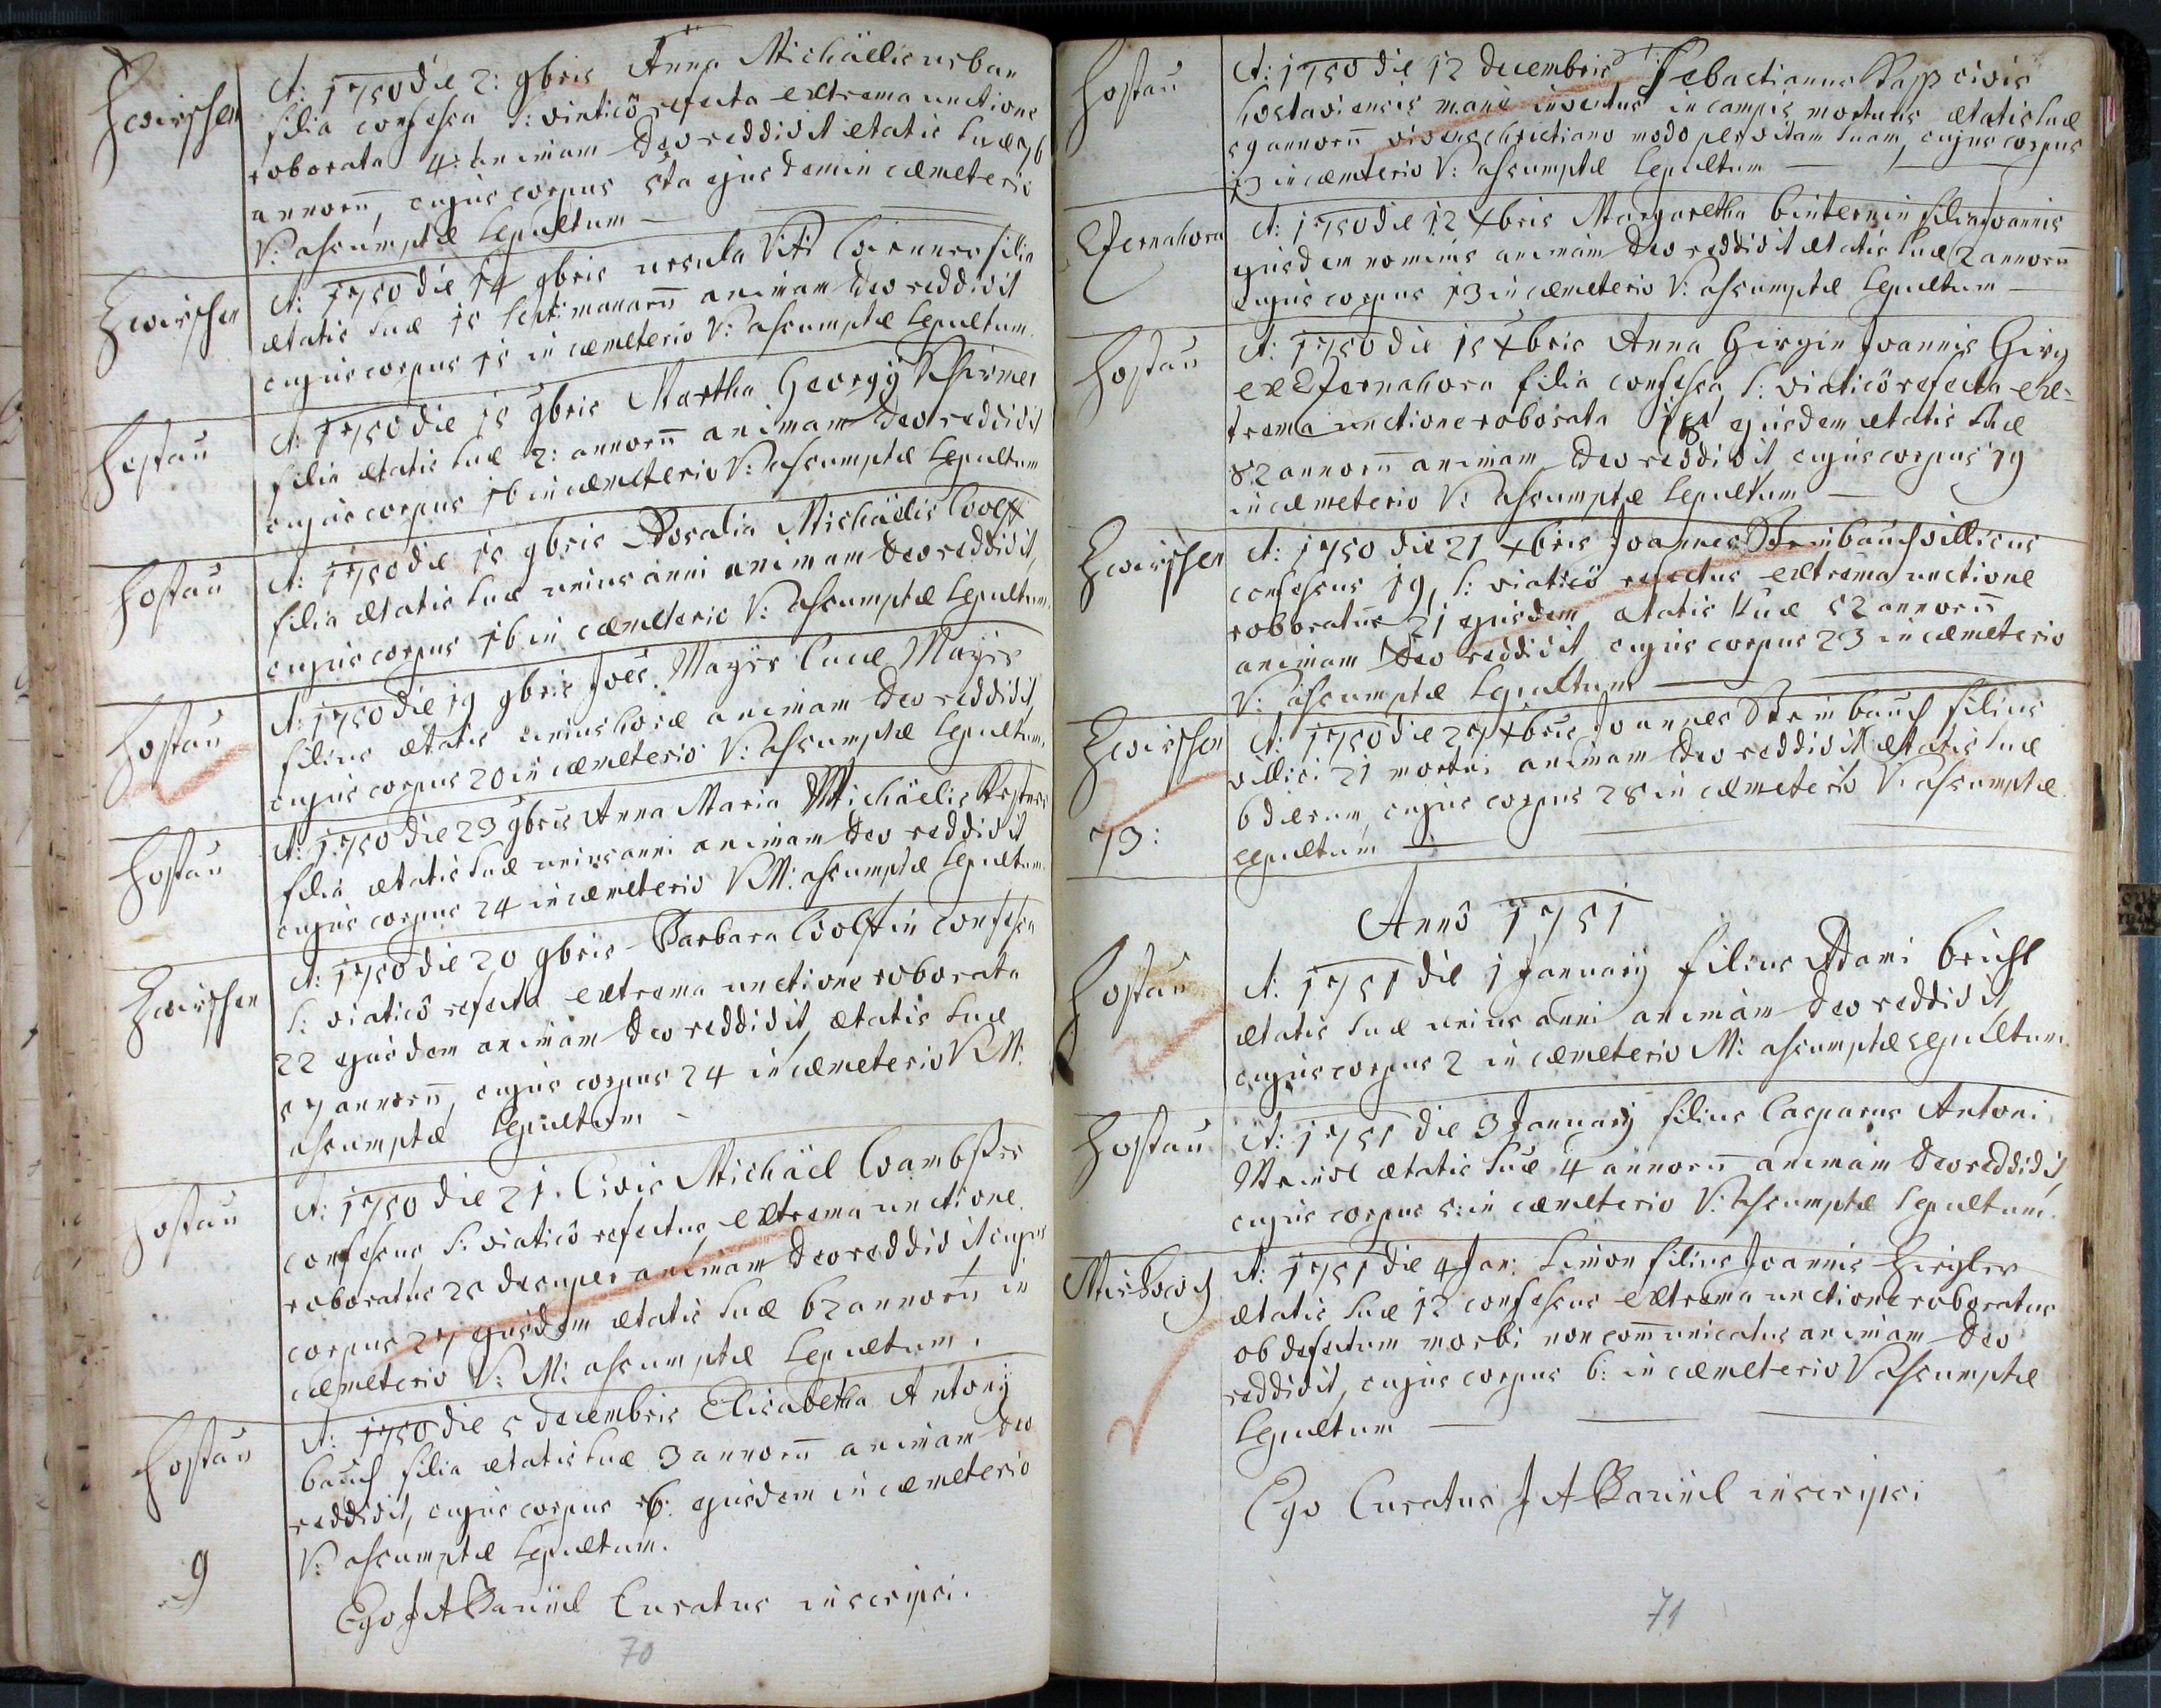 Zwirschen
A: 1750 die 2: 9bris Anna Michäelis urban
filia confessa S: viaticô refecta extrema unctione
roborata 4: animam Deo reddidit ætatis suæ 76
annorū, cujus corpus 5ta ejusdem in cæmeterio
V: assumptæ sepultum
Zwirschen
A: 1750 die 14 9bris ursula Viti filia
ætatis suæ 15 septimanarū animam Deo reddidit
cujus corpus 15 in cæmeterio V: assumptæ sepultum.
Hostau
A: 1750 die 15 9bris Martha Georgÿ
filia ætatis suæ 2: annorū animam Deo reddidit
cujus corpus 16 in cæmeterio V: assumptæ sepultum
Hostau
A: 1750 die 15 9bris Rosalia Michäelis Wolff
filia ætatis suæ unius anni animam Deo reddidit,
cujus corpus 16 in cæmeterio V: assumptæ sepultum.
Hostau
A: 1750 die 19 9bris Joës Mayer Mayer
filius ætatis unius horæ animam Deo reddidit,
cujus corpus 20 in cæmeterio V: assumptæ sepultum.
Hostau
A: 1750 die 23 9bris Anna Maria Michäelis
filia ætatis suæ unius anni animam Deo reddidit
cujus corpus 24 in cæmeterio V M: assumptæ sepultum.
Zwirschen
A: 1750 die 20 9bris Barbara Wolffin confessa
S: viaticô refecta extrema unctione roborata
22 ejusdem animam Deo reddidit, ætatis suæ
57 annorū, cujus corpus 24 in cæmeterio V M:
assumptæ sepultum
Hostau
A: 1750 die 21. Civis Michäel Wambster
confessus S: viaticô refectus, extrema unctione
roboratus 25 desuper animam Deo reddidit cujus
corpus 27 ejusdem ætatis suæ 62 annorū in
cæmeterio V: M: assumptæ sepultum.
Hostau
A: 1750 die 5 decembris Elisabetha Antonÿ
bauch filia ætatis suæ 3 annorū animam Deo
reddidit, cujus corpus 6: ejusdem in cæmeterio
V: assumptæ sepultum.
9
Ego J A Curatus inscripsi.
70
Hostau
A: 1750 die 12 decembris Sebastianus Rapp civis
hostaviensis mane inventus in campis mortuus ætatis suæ
59 annorū vivens christiano modo per vitam suam, cujus corpus
13 in cæmeterio V: assumptæ sepultum
Czernahora
A: 1750 die 12 Xbris Margaretha binterin filia Joannis
ejusdem nominis animam Deo reddidit ætatis suæ 2 annorū
cujus corpus 13 in cæmeterio V: assumptæ sepultum
Hostau
A: 1750 die 15 Xbris Anna Girgin Joannis Girg
ex Czernahora filia confessa, S: viaticô refecta ex=
trema unctione roborata 18 ejusdem ætatis suæ
82 annorū animam Deo reddidit cujus corpus 19
in cæmeterio V: assumptæ sepultum
Zwirschen
A: 1750 die 21 Xbris Joannes Steinbauch villicus
confessus 19, S: viaticô refectus extrema unctione
roboratus 21 ejusdem ætatis suæ 52 annorū
animam Deo reddidit, cujus corpus 23 in cæmeterio
V: assumptæ sepultum
Zwirschen
A: 1750 die 27 Xbris Joannes Steinbauch filius
villici 21 mortui animam Deo reddidit ætatis suæ
6 dierum, cujus corpus 28 in cæmeterio V: assumptæ
sepultum
73:
Annô 1751
Hostau
A: 1751 die 1 Januarÿ filius Adami bricht
ætatis suæ unius anni animam Deo reddidit,
cujus corpus 2 in cæmeterio M: assumptæ sepultum.
Hostau
A: 1751 die 3 Januarÿ filius Casparus Antoni
ætatis suæ 4 annorū animam Deo reddidit,
cujus corpus 5: in cæmeterio V: assumptæ sepultum.
A: 1751 die 4 Jan: Simon filius Joannis Ziegler
ætatis suæ 12 confessus extrema unctione roboratus
ob defectum morbi non com̄unicatus animam Deo
reddidit, cujus corpus 6: in cæmeterio V assumptæ
sepultum
Ego Curatus J A inscripsi
71